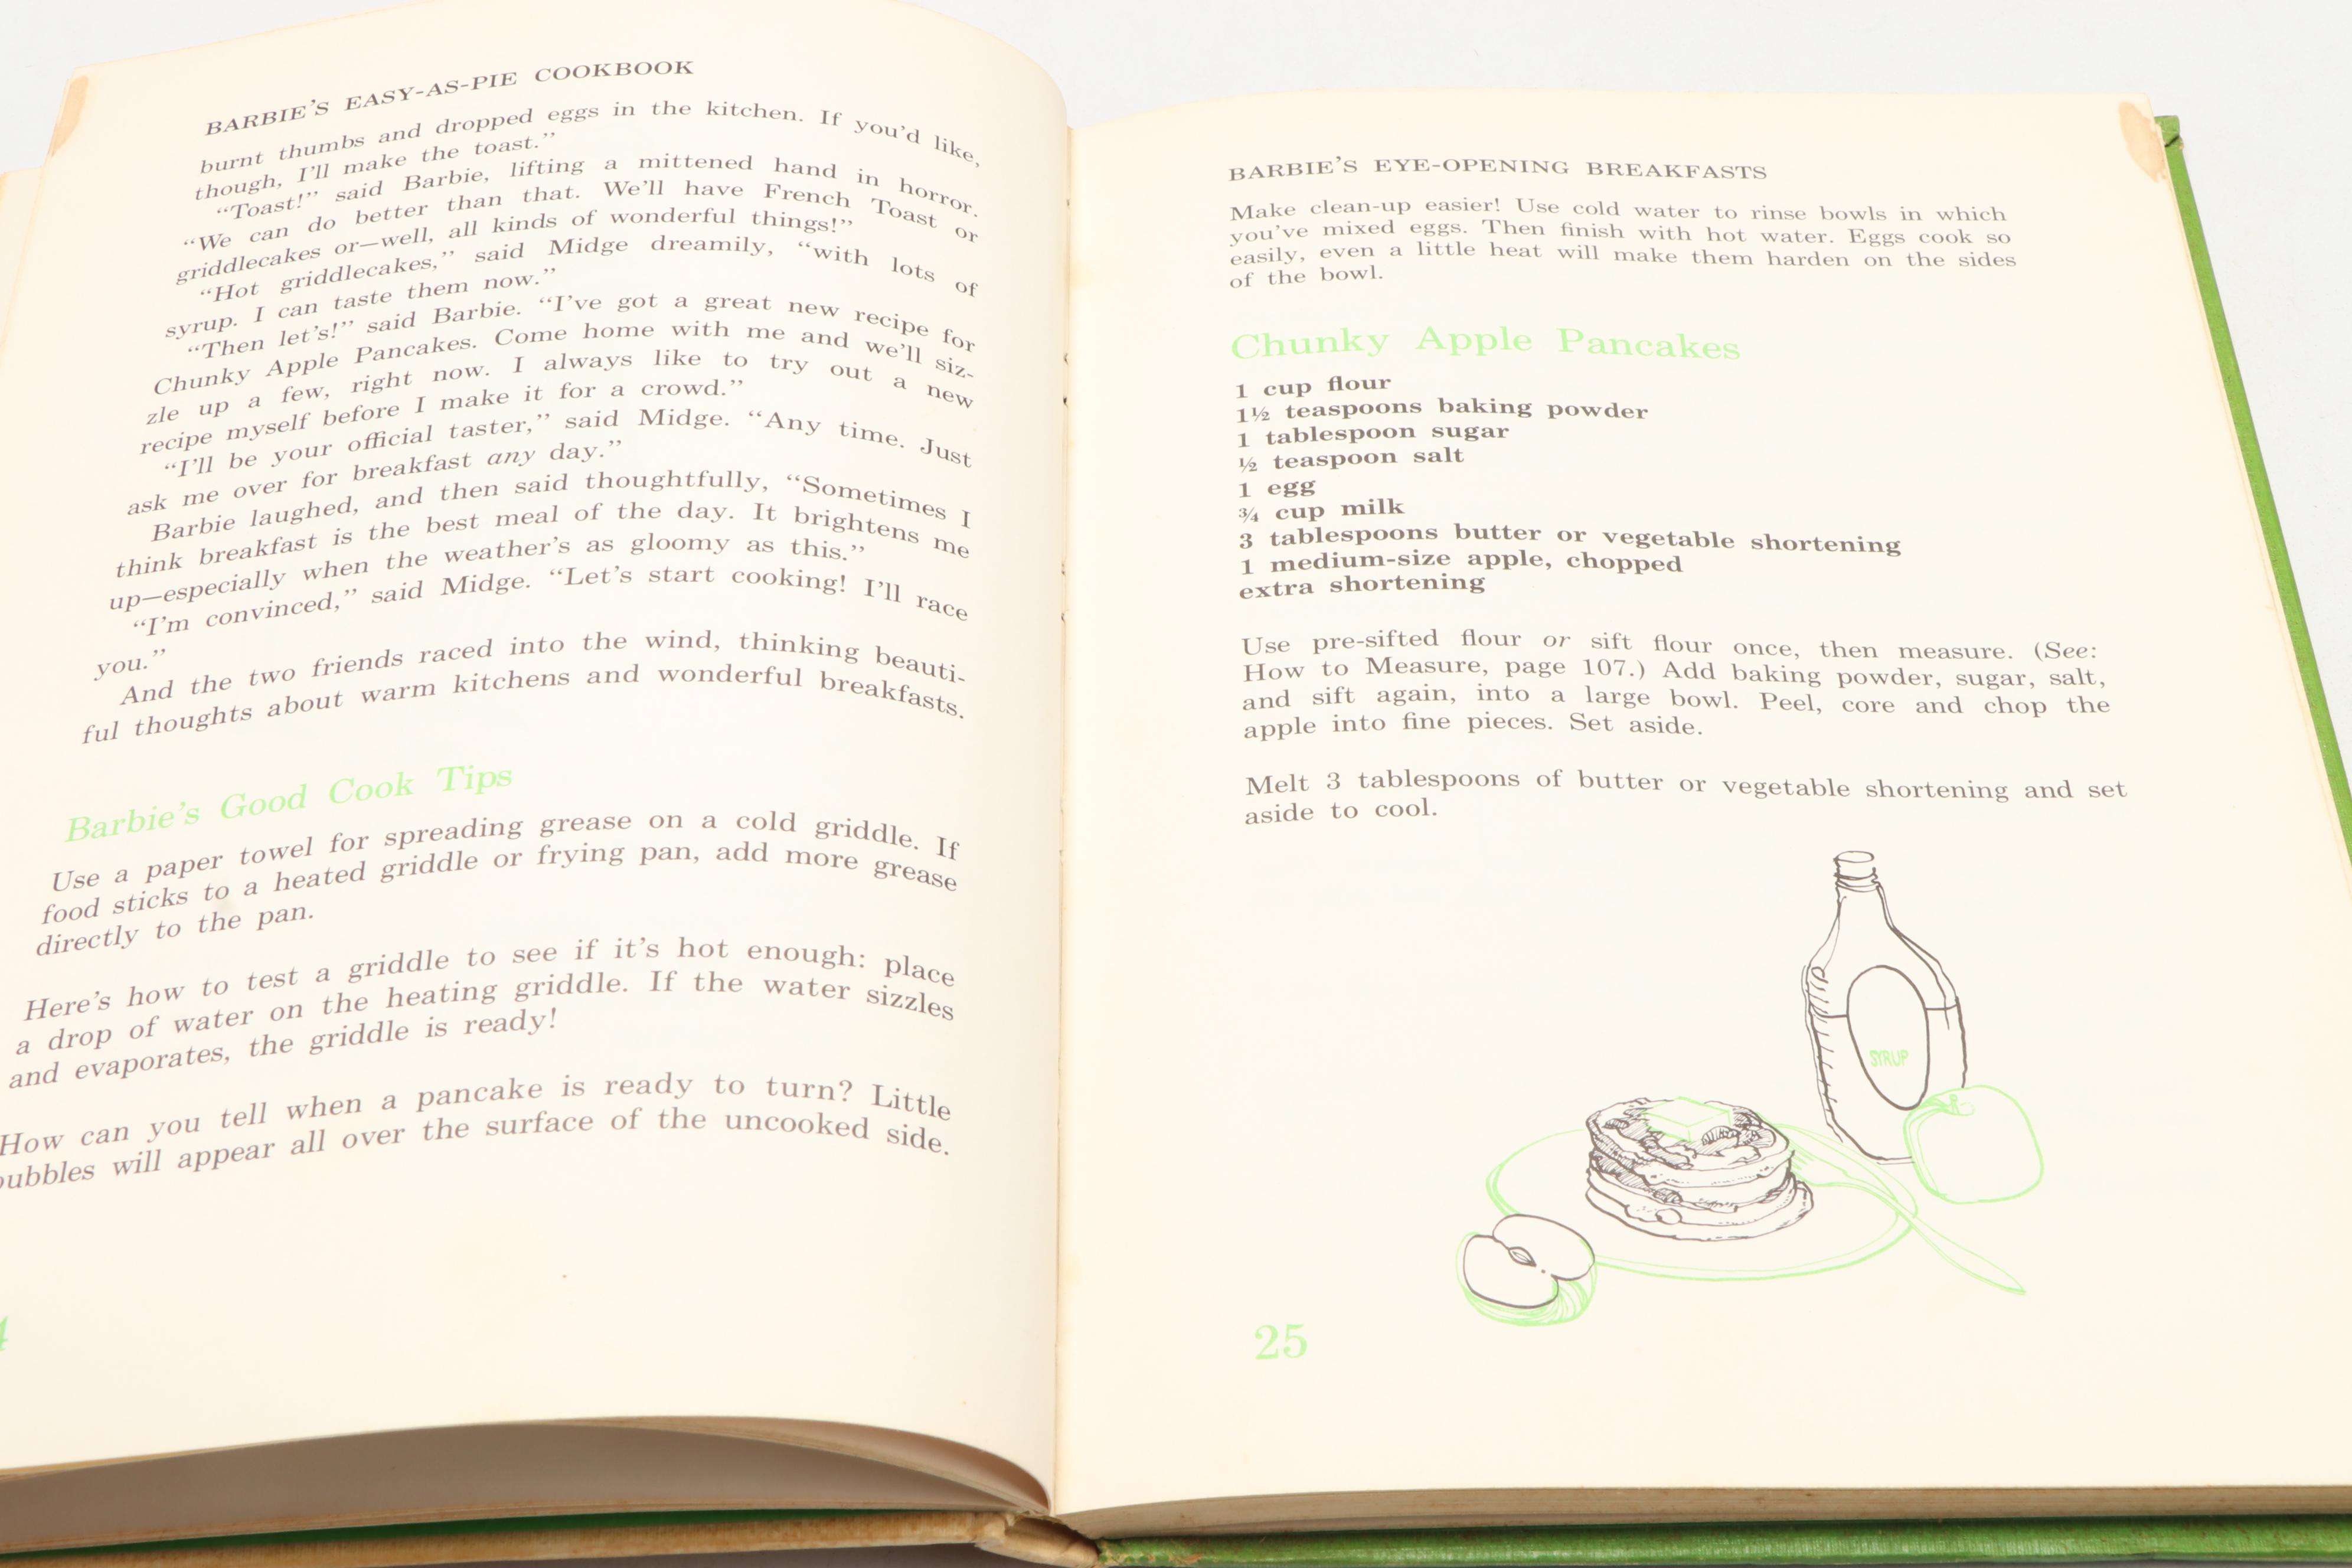 BARBIE'S EASY-AS-PIE COOKBOOK
burnt thumbs and dropped eggs in the kitchen. If you'd like,
though, I'll make the toast."
"Toast!" said Barbie, lifting a mittened hand in horror.
"We can do better than that. We'll have French Toast or
griddlecakes or—well, all kinds of wonderful things!"
"Hot griddlecakes," said Midge dreamily, "with lots of
syrup. I can taste them now."
"Then let's!" said Barbie. "I've got a great new recipe for
Chunky Apple Pancakes. Come home with me and we'll siz-
zle up a few, right now. I always like to try out a new
recipe myself before I make it for a crowd."
"I'll be your official taster," said Midge. "Any time. Just
ask me over for breakfast any day."
Barbie laughed, and then said thoughtfully, "Sometimes I
think breakfast is the best meal of the day. It brightens me
up—especially when the weather's as gloomy as this."
"I'm convinced," said Midge. "Let's start cooking! I'll race
you."
And the two friends raced into the wind, thinking beauti-
ful thoughts about warm kitchens and wonderful breakfasts.
Barbie's Good Cook Tips
Use a paper towel for spreading grease on a cold griddle. If
food sticks to a heated griddle or frying pan, add more grease
directly to the pan.
Here's how to test a griddle to see if it's hot enough: place
a drop of water on the heating griddle. If the water sizzles
and evaporates, the griddle is ready!
How can you tell when a pancake is ready to turn? Little
bubbles will appear all over the surface of the uncooked side.
4
BARBIE'S EYE-OPENING BREAKFASTS
Make clean-up easier! Use cold water to rinse bowls in which
you've mixed eggs. Then finish with hot water. Eggs cook so
easily, even a little heat will make them harden on the sides
of the bowl.
Chunky Apple Pancakes
1 cup flour
1½ teaspoons baking powder
1 tablespoon sugar
½ teaspoon salt
1 egg
¾ cup milk
3 tablespoons butter or vegetable shortening
1 medium-size apple, chopped
extra shortening
Use pre-sifted flour or sift flour once, then measure. (See:
How to Measure, page 107.) Add baking powder, sugar, salt,
and sift again, into a large bowl. Peel, core and chop the
apple into fine pieces. Set aside.
Melt 3 tablespoons of butter or vegetable shortening and set
aside to cool.
SYRUP
25